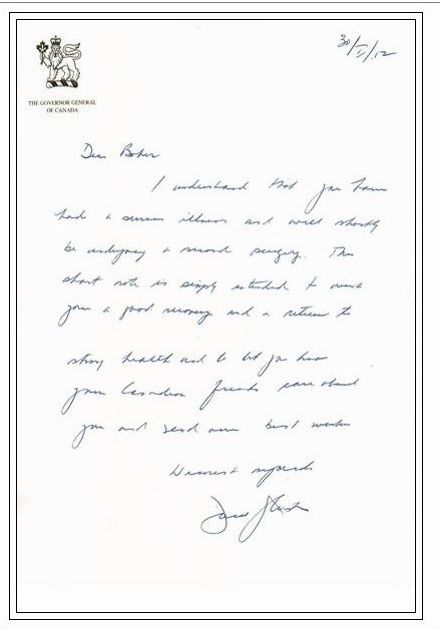 30/V/12
THE GOVERNOR GENERAL
OF CANADA
Dear
I understand that you have
had a serious illness and will shortly
be undergoing a second surgery. This
short note is simply intended to wish
you a good recovery and a return to
strong health and to let you know
your Canadian friends care about
you and send our best wishes
Warmest regards
David Johnston